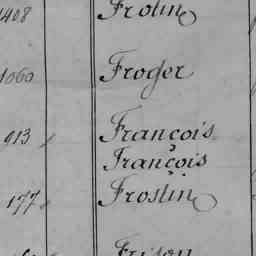 1408 Frolin
1060 Froger
913 François
François
177 Froslin
Frison